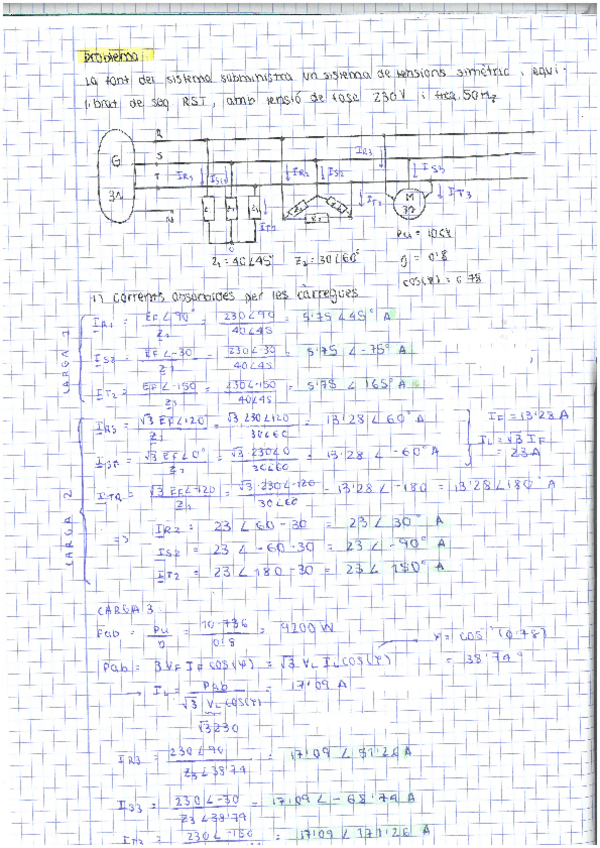 Problema:
La font del sistema subministra un sistema de tensions simètric, equi-
librat de seq RST, amb tensió de fase 230V i freq. 50Hz
R
S
T
N
G
3~
I R1 I S1 I T1 I R2 I S2 I T2 I R3 I S3 I T3
Z1 Z1 Z1 Z2 Z2 Z2
M
3~
Z1 = 40∠45° Z2 = 30∠60°
Pu = 10CV
η = 0'8
cos(φ) = 0'78
1) Corrents absorbides per les càrregues
CARGA 1
I R1 = EF∠90° / Z1 = 230∠90 / 40∠45 = 5'75∠45° A
I S2 = EF∠-30 / Z1 = 230∠-30 / 40∠45 = 5'75∠-75° A
I T2 = EF∠-150 / Z1 = 230∠-150 / 40∠45 = 5'75∠165° A
CARGA 2
I RS = √3 EF∠120 / Z1 = √3 230∠120 / 30∠60 = 13'28∠60° A
I ST = √3 EF∠0° / Z2 = √3 · 230∠0 / 30∠60 = 13'28∠-60° A
I TR = √3 EF∠-120 / Z2 = √3 · 230∠-120 / 30∠60 = 13'28∠-180 = 13'28∠180° A
IF = 13'28 A
IL = √3 IF
= 23A
=> I R2 = 23∠60-30 = 23∠30° A
I S2 = 23∠-60-30 = 23∠-90° A
I T2 = 23∠180-30 = 23∠150° A
CARGA 3
Pab = Pu / η = 10·736 / 0'8 = 9200 W
φ = cos⁻¹(0'78)
= 38'74°
Pab = 3 VF IF cos(φ) = √3 VL IL cos(φ)
→ IL = Pab / √3 VL cos(φ) = 17'09 A
√3 230
I R3 = 230∠90 / Z3∠38'74 = 17'09∠51'26 A
I S3 = 230∠-30 / Z3∠38'74 = 17'09∠-68'74 A
I T3 = 230∠-150 = 17'09∠171'26 A